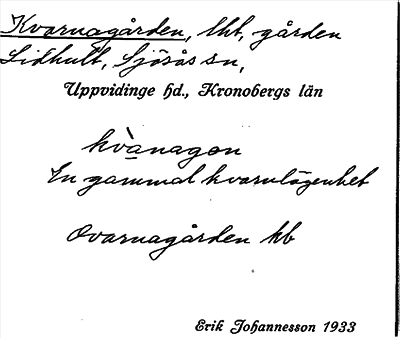 Kvarnagården, lht, gården
Lidhult, Sjösås sn,
Uppvidinge hd., Kronobergs län
kvànagon
En gammal kvarnlägenhet
Qvarnagården kb
Erik Johannesson 1933